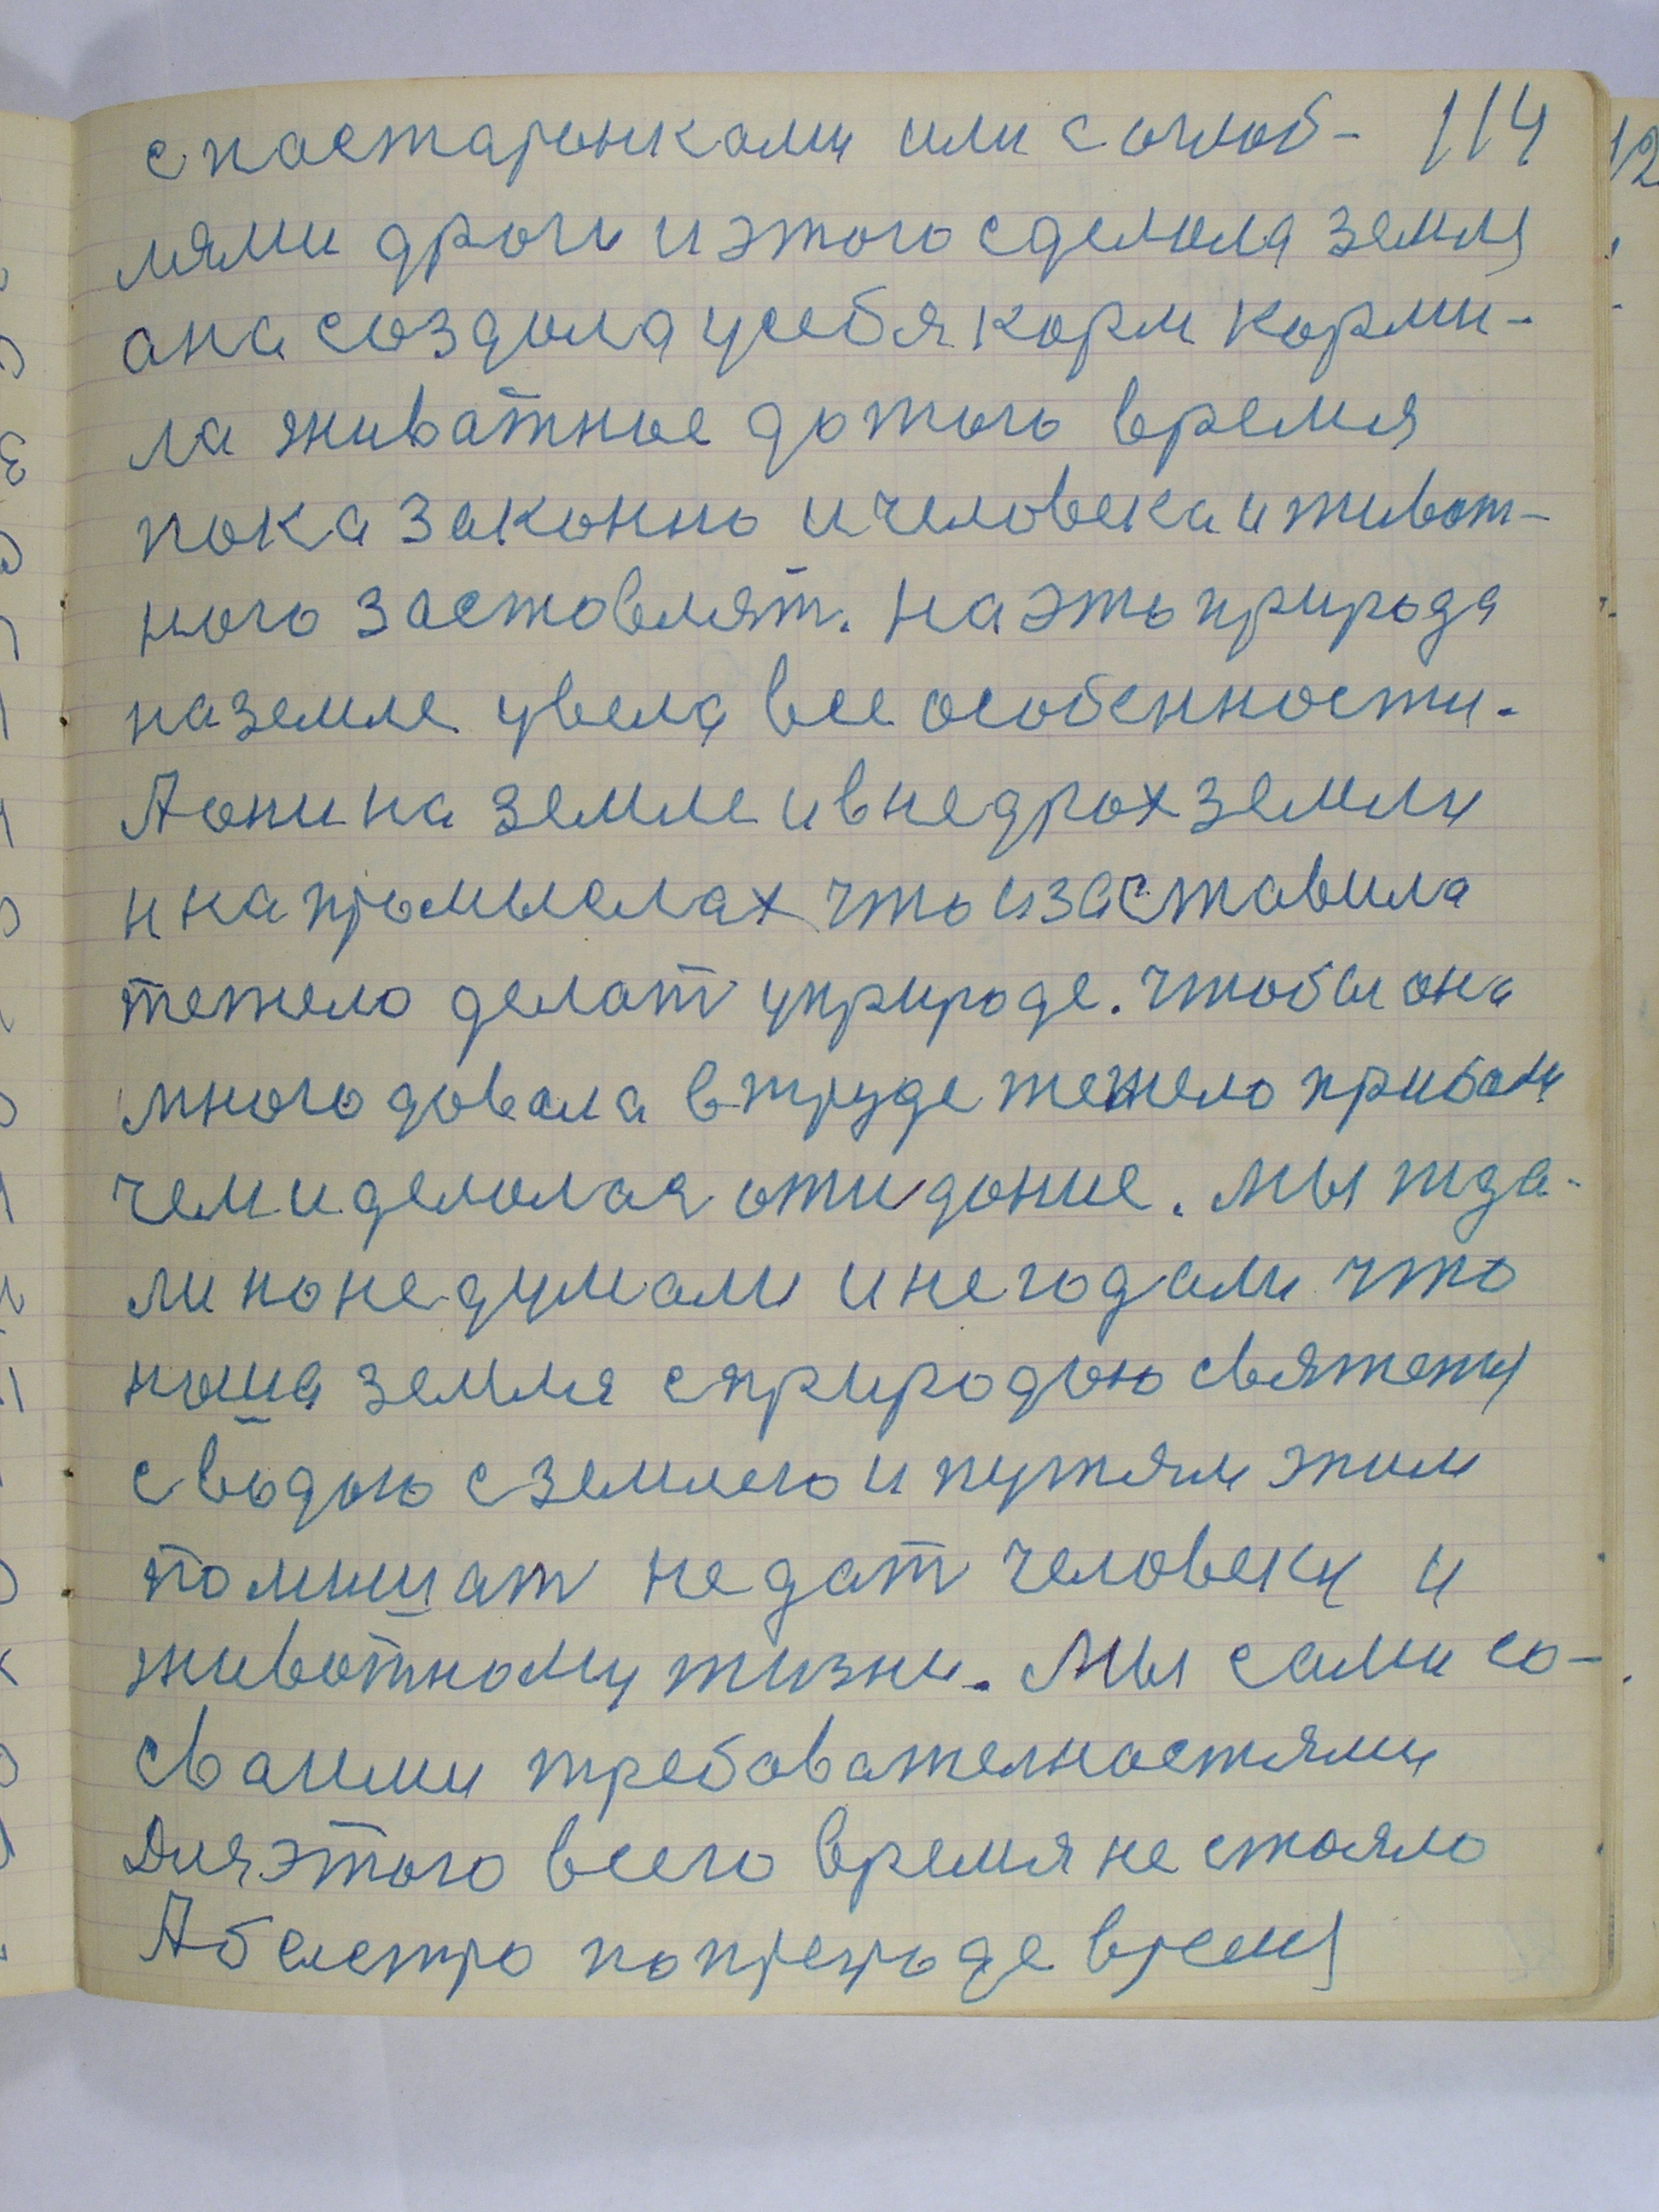 с постаронками или с оглоб- 114
лями дроги и этого сделола земля
ана создола у себя корм корми-
ла живатное до того время
пока законно и человека и живот-
ного застовлят. На это природа
на земле увела все особенности.
А они на земле и в недрох земли
и на промыслах что и заставила
тежело делат у природе. Чтобы она
много довала в труде тежело прибали
чем и делолая ожидоние. Мы жда-
ли но не думали и не годали что
ноша земля с природою свяжены
с водою с землею и путями этим
помишат не дат человеку и
живо́тному жизни. Мы сами со-
сваими требователностями
Для этого всего время не стояло
А быстро по природе время